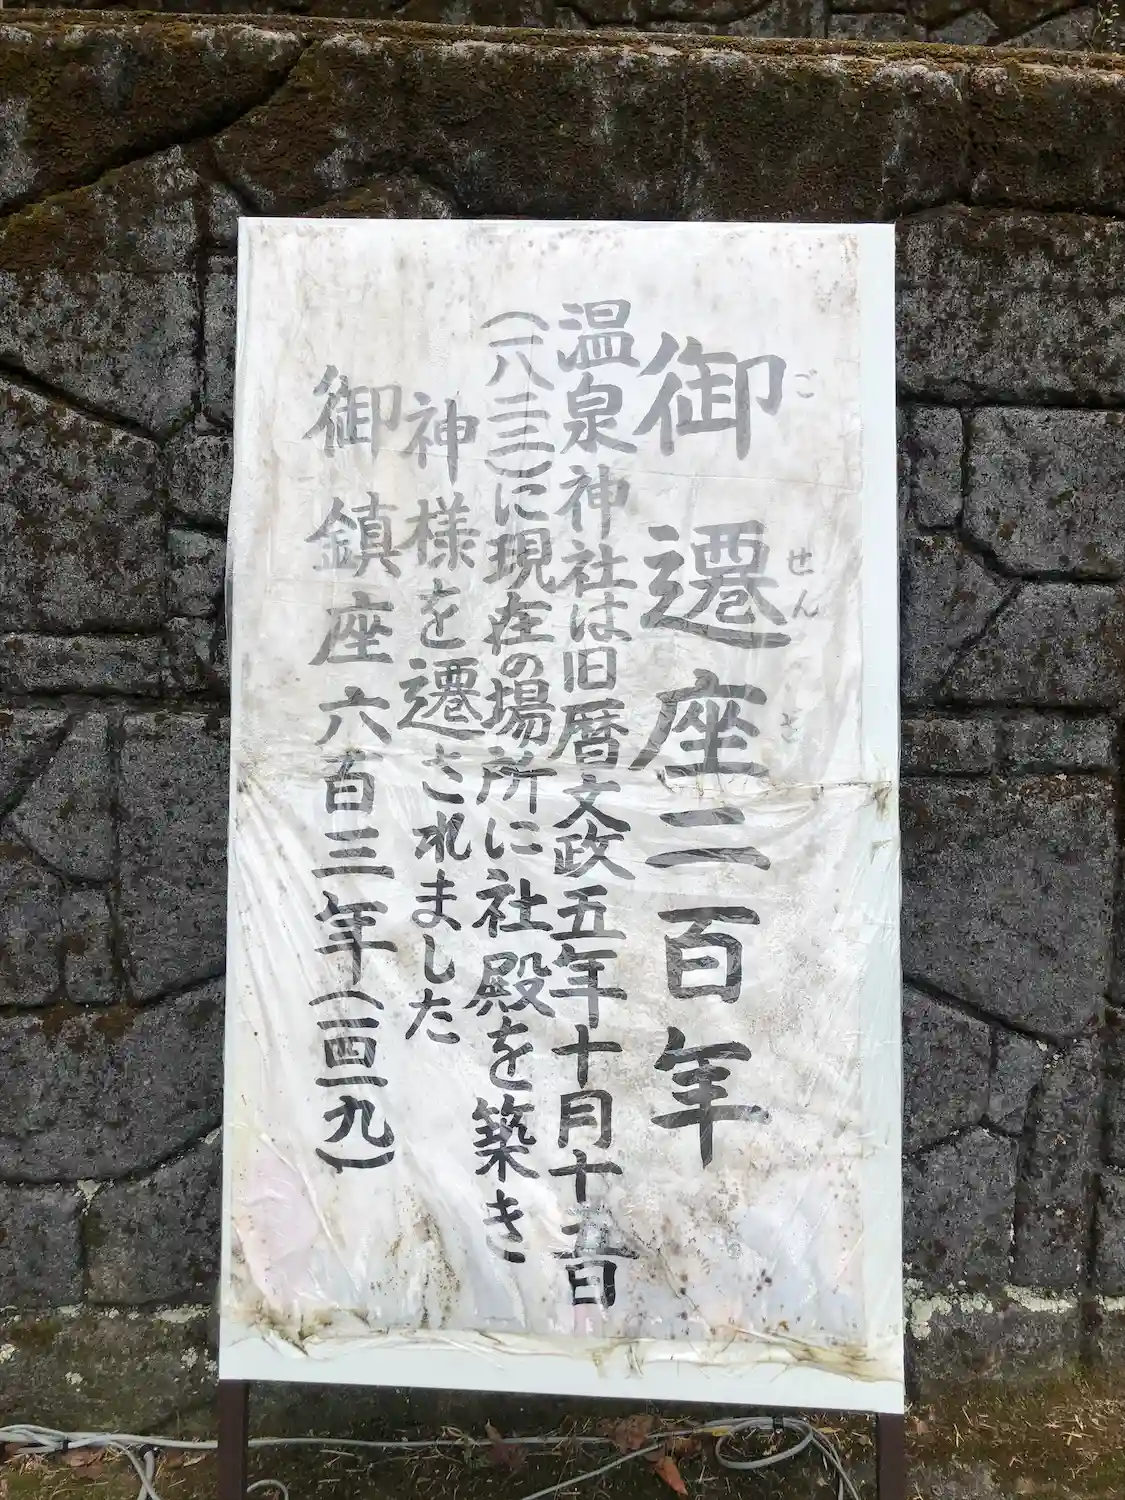 御遷座二百年
ごせんざ
温泉神社は旧暦文政五年十月十五日
(一八二二)に現在の場所に社殿を築き
神様を遷されました
御鎮座六百三年(一四一九)